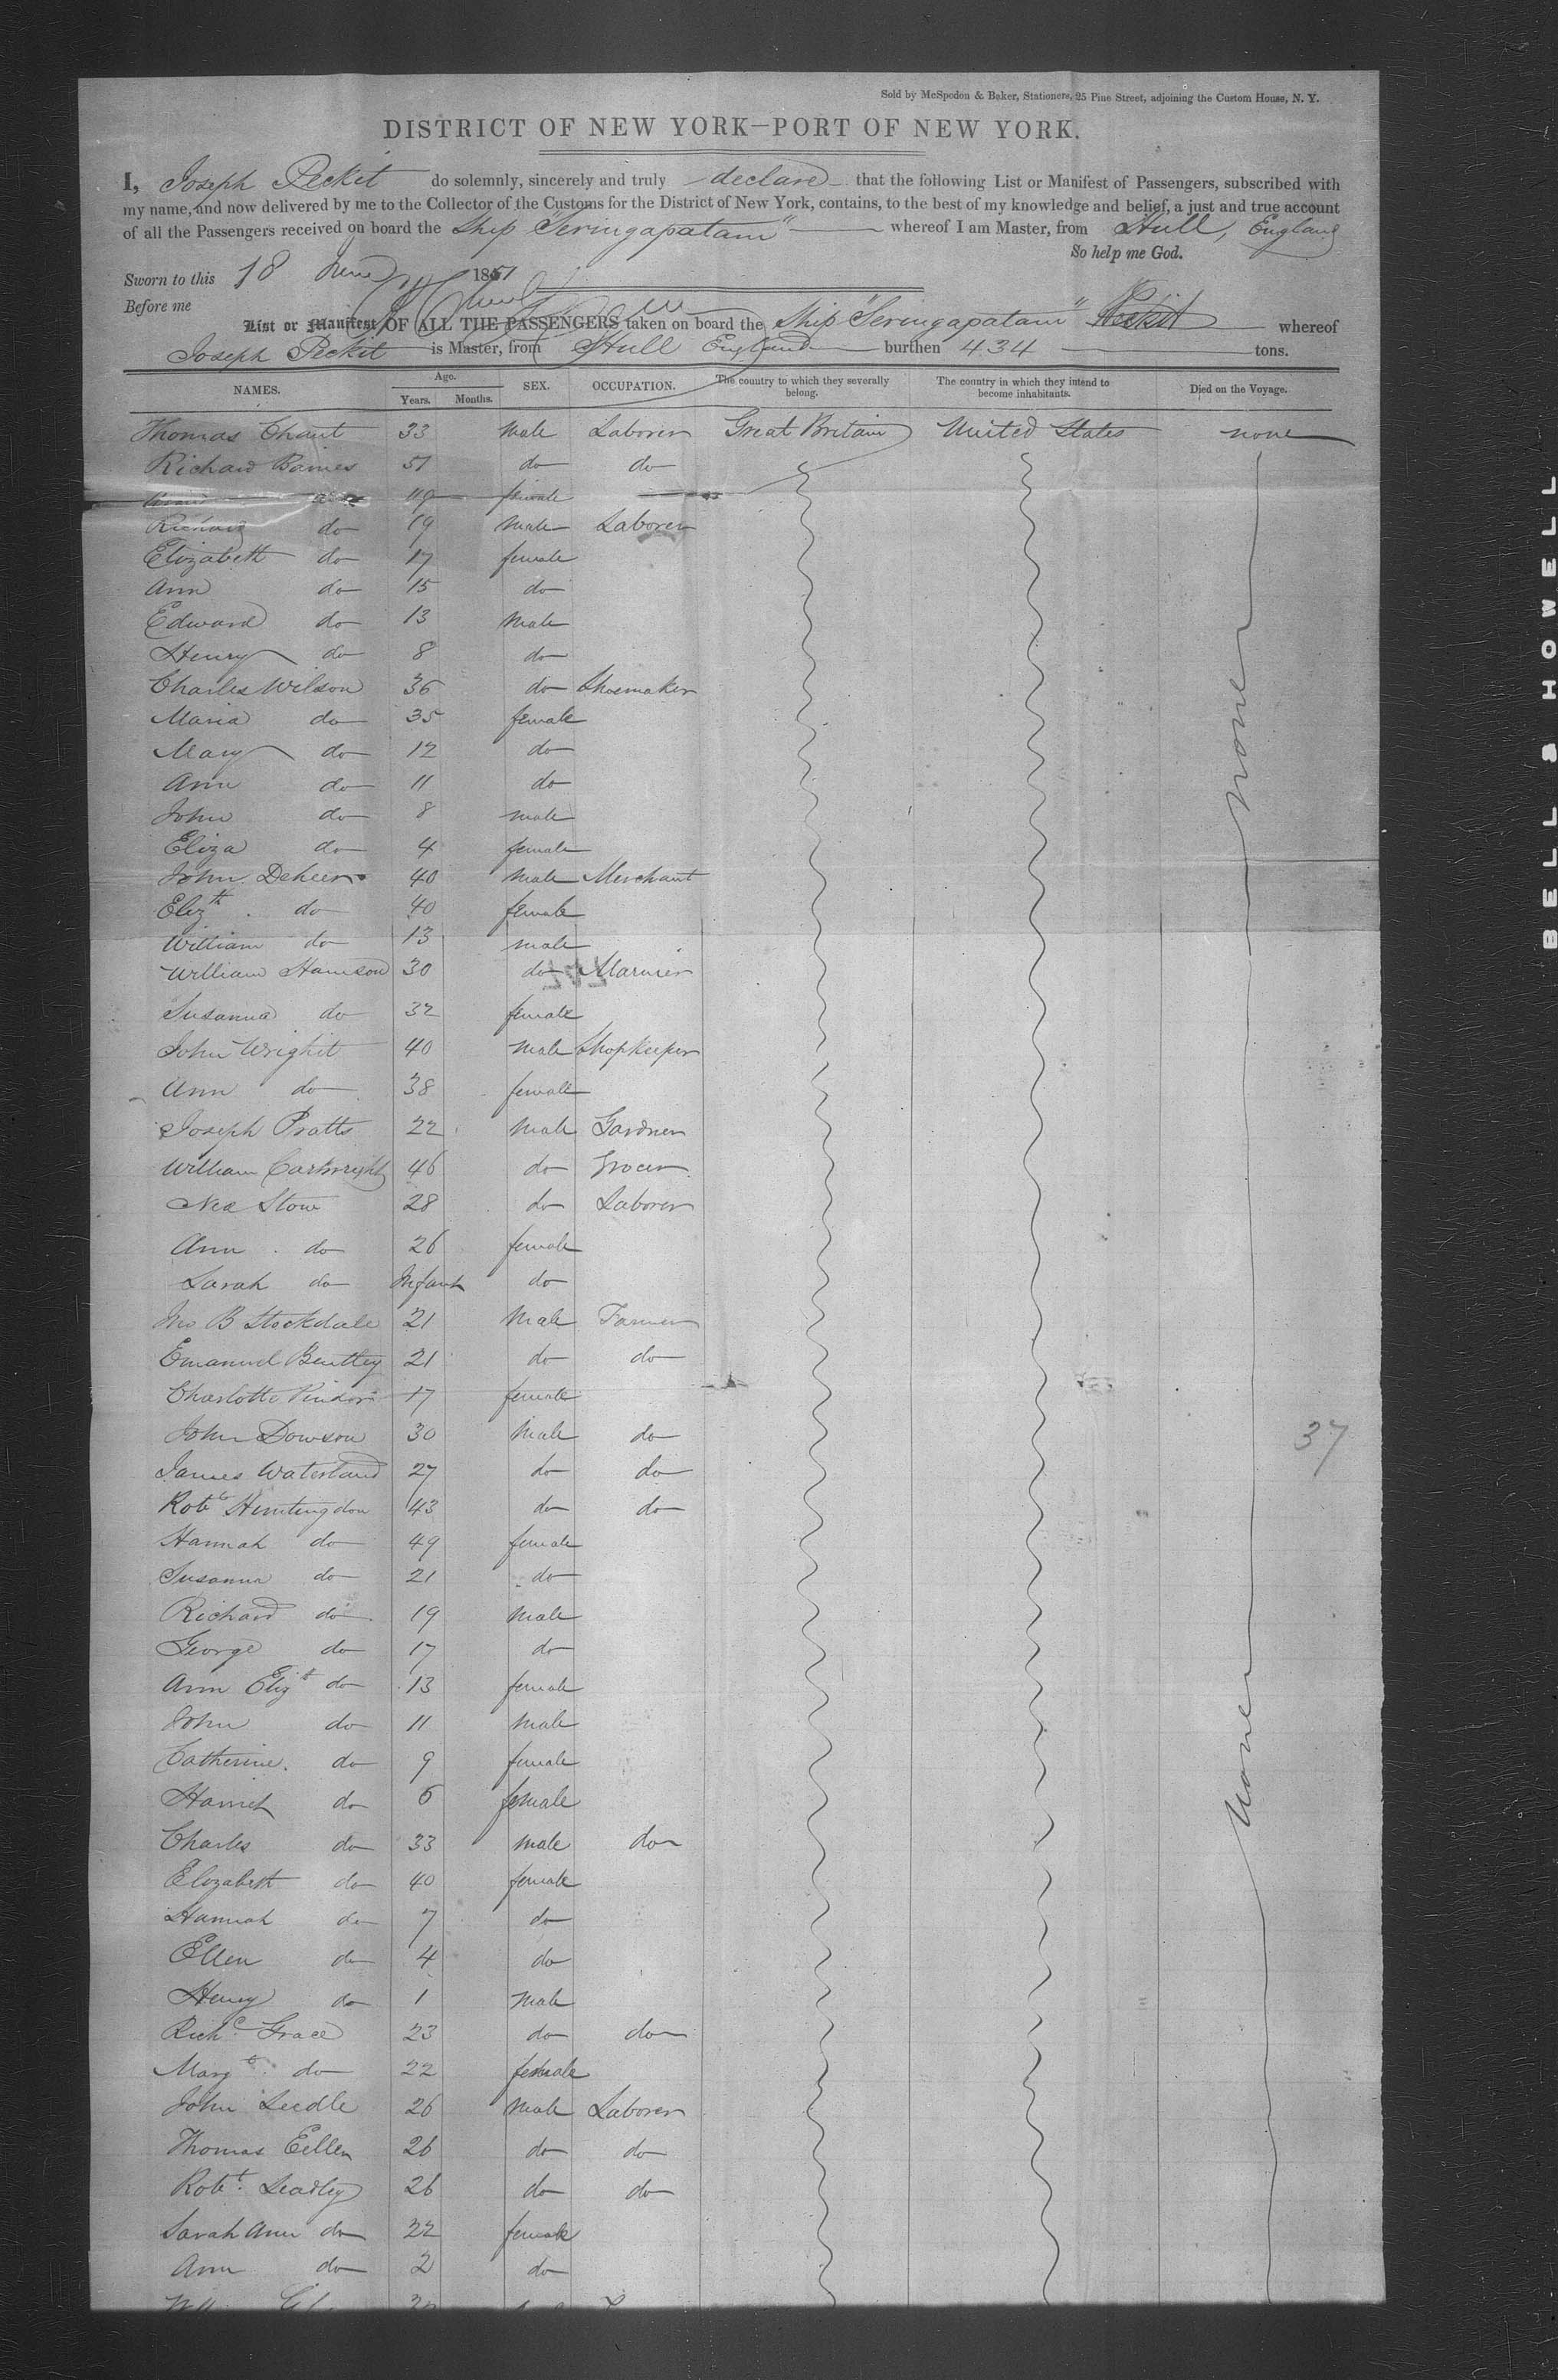 Sold by McSpedon & Baker, Stationers, 25 Pine Street, adjoining the Custom House, N. Y.
DISTRICT OF NEW YORK—PORT OF NEW YORK.
I, Joseph Peckit do solemnly, sincerely and truly declare that the following List or Manifest of Passengers, subscribed with
my name, and now delivered by me to the Collector of the Customs for the District of New York, contains, to the best of my knowledge and belief, a just and true account
of all the Passengers received on board the Ship "Seringapatam" whereof I am Master, from Hull, England
So help me God.
Sworn to this 18 June 1851
Before me
List or Manifest OF ALL THE PASSENGERS taken on board the Ship "Seringapatam" whereof
Joseph Peckit is Master, from Hull England burthen 434 tons.
NAMES. Age. Years. Months. SEX. OCCUPATION. The country to which they severally belong. The country in which they intend to become inhabitants. Died on the Voyage.
Thomas Chant 33 Male Laborer Great Britain United States none
Richard Baines 51 do do
49 female
Richard do 19 Male Laborer
Elizabeth do 17 female
Ann do 15 do
Edward do 13 Male
Henry do 8 do
Charles Wilson 36 do Shoemaker
Maria do 35 female
Mary do 12 do
Ann do 11 do
John do 8 male
Eliza do 4 female
John 40 Male Merchant
Elizth do 40 female
William do 13 male
William Harrison 30 do Mariner
Susanna do 32 female
John Wright 40 Male Shopkeeper
Ann do 38 female
Joseph Pratts 22 Male Gardner
William Cartwright 46 do Grocer
Stow 28 do Laborer
Ann do 26 female
Sarah do Infant do
Jno B Stockdale 21 Male Farmer
Emanuel Bentley 21 do do
Charlotte 17 female
John Dowson 30 Male do
James Waterland 27 do do
Robt Huntingdon 43 do do
Hannah do 49 female
Susanna do 21 do
Richard do 19 Male
George do 17 do
Ann Elizth do 13 female
John do 11 Male
Catherine do 9 female
Harriet do 6 female
Charles do 33 male do
Elizabeth do 40 female
Hannah do 7 do
Ellen do 4 do
Henry do 1 Male
Richd Grace 23 do do
Margt do 22 female
John Leedle 26 Male Laborer
Thomas 26 do do
Robt Leadley 26 do do
Sarah Ann do 22 female
Ann do 2 do
none
none
37
BELL & HOWELL